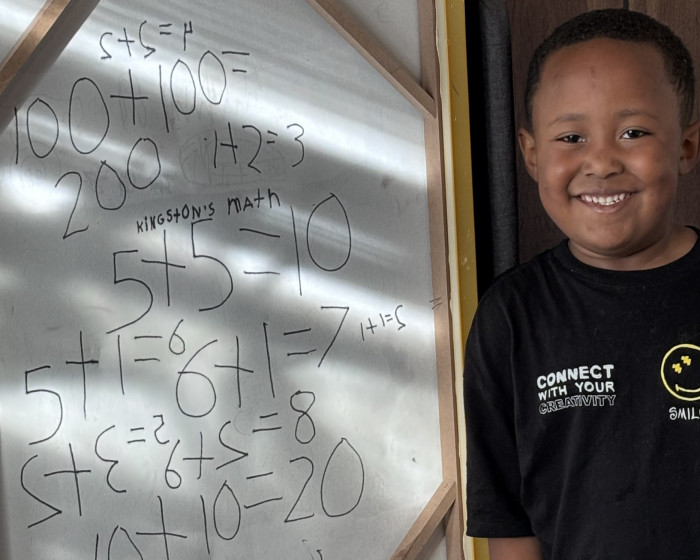 2+2=4
100+100=
200
1+2=3
KINGSTON'S MATH
5+5=10
1+1=2
5+1=6
6+1=7
2+3=5
6+2=8
10+10=20
CONNECT
WITH YOUR
CREATIVITY
SMIL